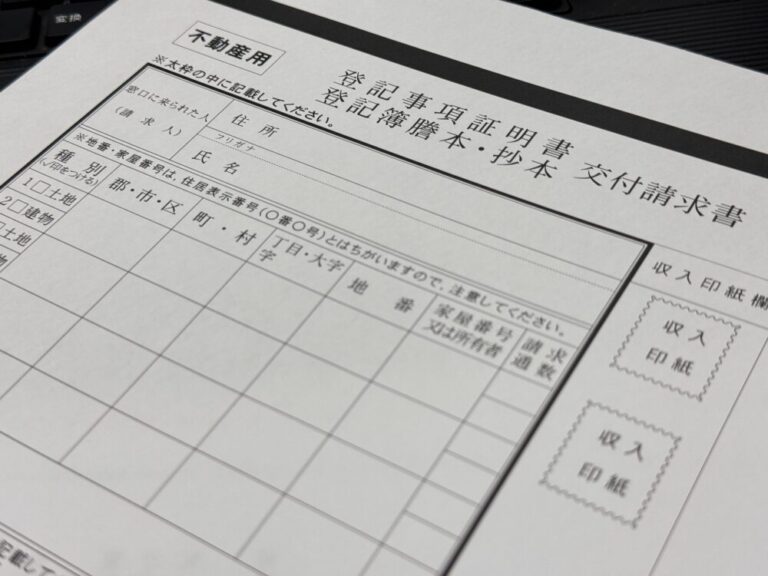 変換
不動産用
※太枠の中に記載してください。
登記事項証明書
登記簿謄本・抄本 交付請求書
窓口に来られた人
(請求人)
住所
フリガナ
氏名
収入印紙欄
※地番・家屋番号は、住居表示番号(〇番〇号)とはちがいますので、注意してください。
種別
(✓印をつける)
郡・市・区
町・村
丁目・大字
字
地番
家屋番号
又は所有者
請求
通数
1□土地
2□建物
土地
収入
印紙
収入
印紙